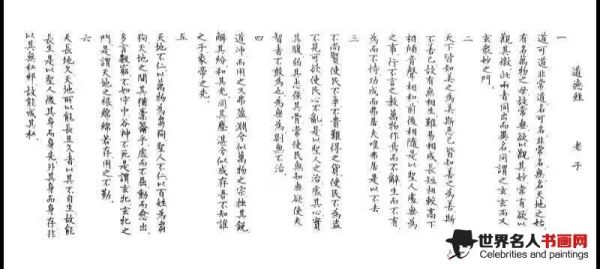 道德經 老子
一
道可道非常道名可名非常名無名天地之始
有名萬物之母故常無欲以觀其妙常有欲以
觀其徼此兩者同出而異名同謂之玄玄而又
玄衆妙之門
二
天下皆知美之為美斯惡已皆知善之為善斯
不善已故有無相生難易相成長短相較高下
相傾音聲相和前後相隨是以聖人處無為
之事行不言之教萬物作焉而不辭生而不有
為而不恃功成而弗居夫唯弗居是以不去
三
不尚賢使民不爭不貴難得之貨使民不為盜
不見可欲使民心不亂是以聖人之治虛其心實
其腹弱其志強其骨常使民無知無欲使夫
智者不敢為也為無為則無不治
四
道沖而用之或弗盈淵兮似萬物之宗挫其銳
解其紛和其光同其塵湛兮似或存吾不知誰
之子象帝之先
五
天地不仁以萬物為芻狗聖人不仁以百姓為芻
狗天地之間其猶橐籥乎虛而不屈動而愈出
多言數窮不如守中谷神不死是謂玄牝玄牝之
門是謂天地之根綿綿若存用之不勤
六
天長地久天地所以能長且久者以其不自生故能
長生是以聖人後其身而身先外其身而身存非
以其無私邪故能成其私
世界名人书画网
Celebrities and paintings